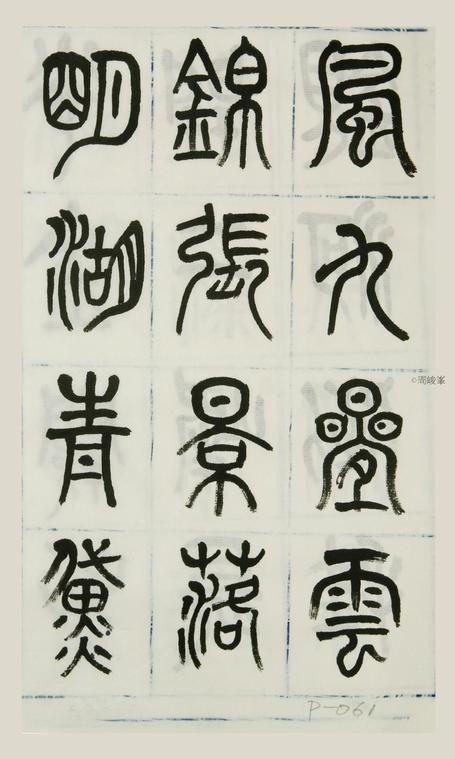 風九疊雲
錦張景落
明湖青黛
©周峻峯
P-061